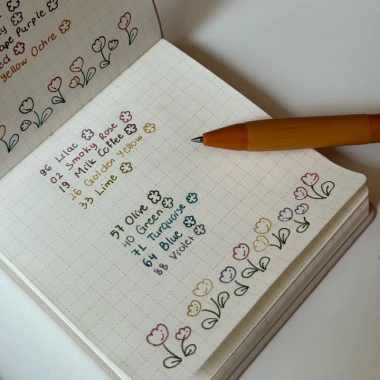 Purple
Yellow Ochre
96 Lilac
02 Smoky Rose
19 Milk Coffee
26 Golden Yellow
33 Lime
57 Olive
40 Green
71 Turquoise
64 Blue
88 Violet